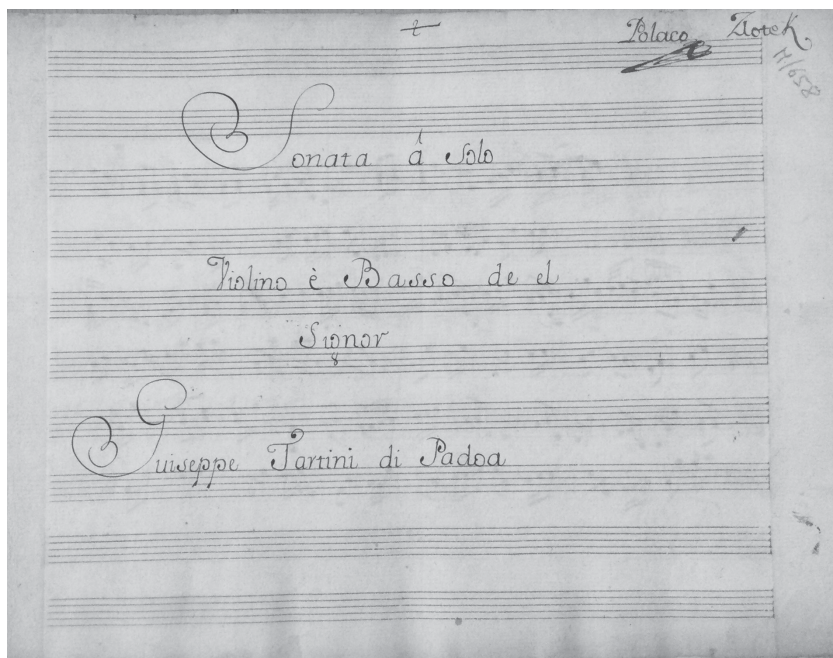 2
Polaco Zlotek
H/658
Sonata á Solo
Violino è Basso de el
Signor
Guiseppe Tartini di Padoa